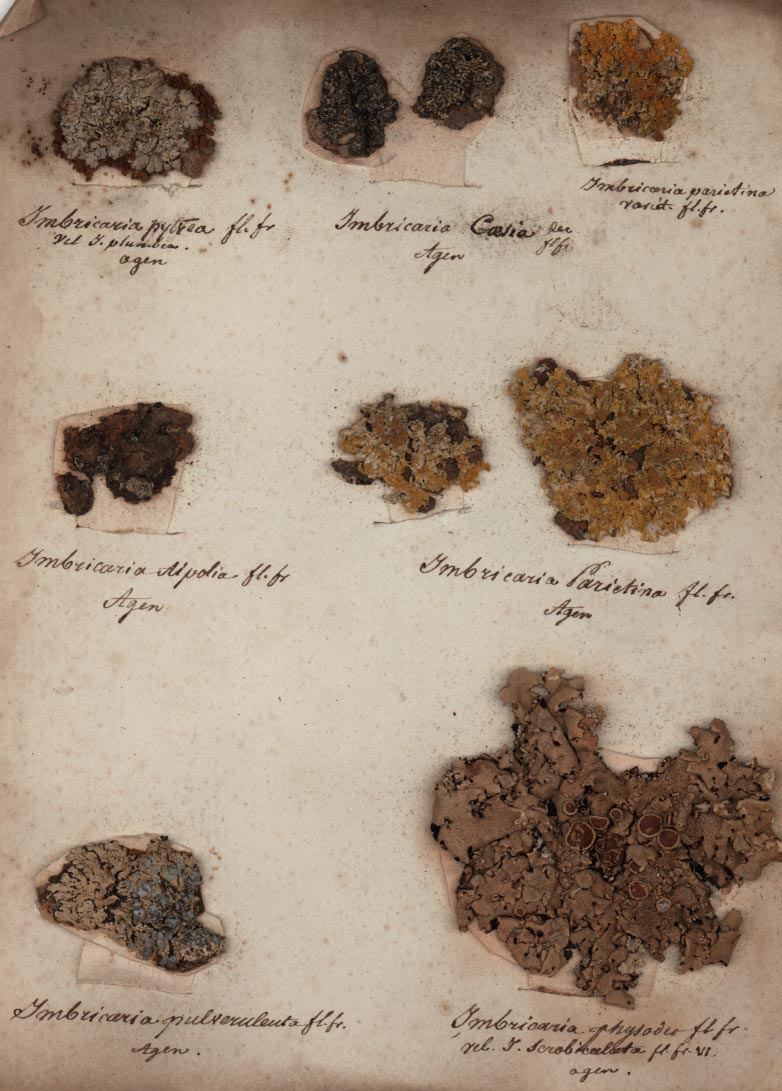 Imbricaria pytrea fl. fr
vel I. plumbea.
agen
Imbricaria Cæsia dec
fl fr
Agen
Imbricaria parietina
variet. fl. fr.
Imbricaria Aipolia fl. fr
Agen
Imbricaria Parietina fl. fr.
Agen
Imbricaria pulverulenta fl. fr.
Agen.
Imbricaria physodes fl fr.
vel. I. Scrobiculata fl. fr. VI.
agen.